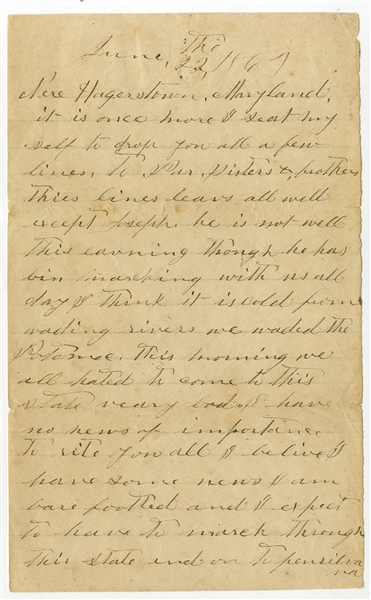 June, The
22, 1867
Nere Hagerstown, Maryland,
it is once more I seat my
self to drop you all a few
lines, to Par, Sisters &, brothers
thies lines leavs all well
except Joseph. he is not well
this eavning though he has
bin marching with us all
day I think it is cold from
wading rivers we waded the
Potomac. this morning we
all hated to come to this
state veary bad I have
no news of importance
to rite you all I belive I
have some news I am
bare footted and I expect
to have to march through
this state and on to pensilva
na